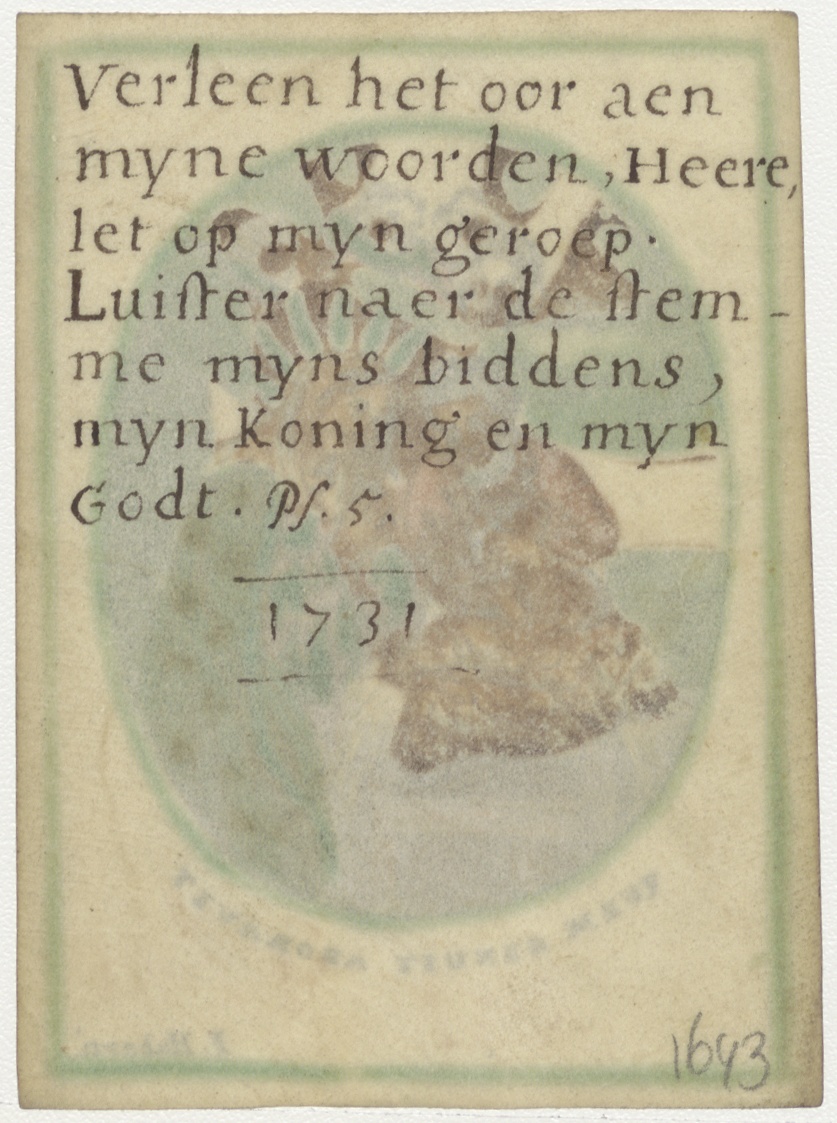 Verleen het oor aen
myne woorden, Heere,
let op myn geroep.
Luiſter naer de ſtem-
me myns biddens,
myn Koning en myn
Godt. Pſ. 5.
1731
1643